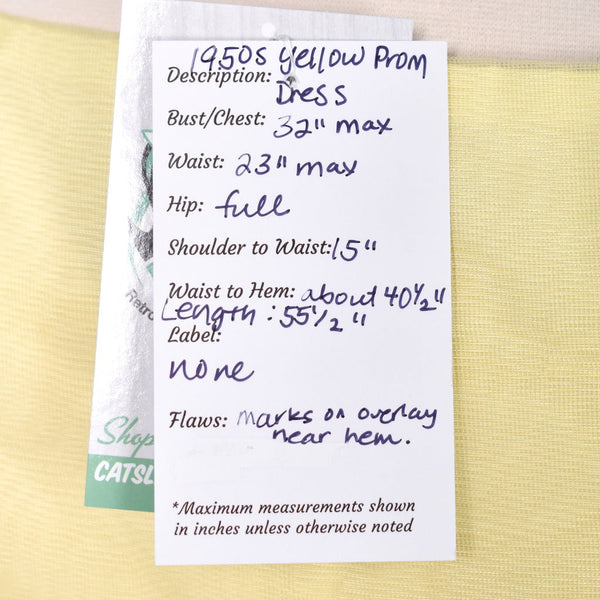 1950s Yellow Prom
Description: Dress
Bust/Chest: 32" max
Waist: 23" max
Hip: full
Shoulder to Waist: 15"
Waist to Hem: about 40 1/2"
Length: 55 1/2"
Label:
none
Flaws: marks on overlay
near hem.
*Maximum measurements shown
in inches unless otherwise noted
Retro
Shop
CATSL